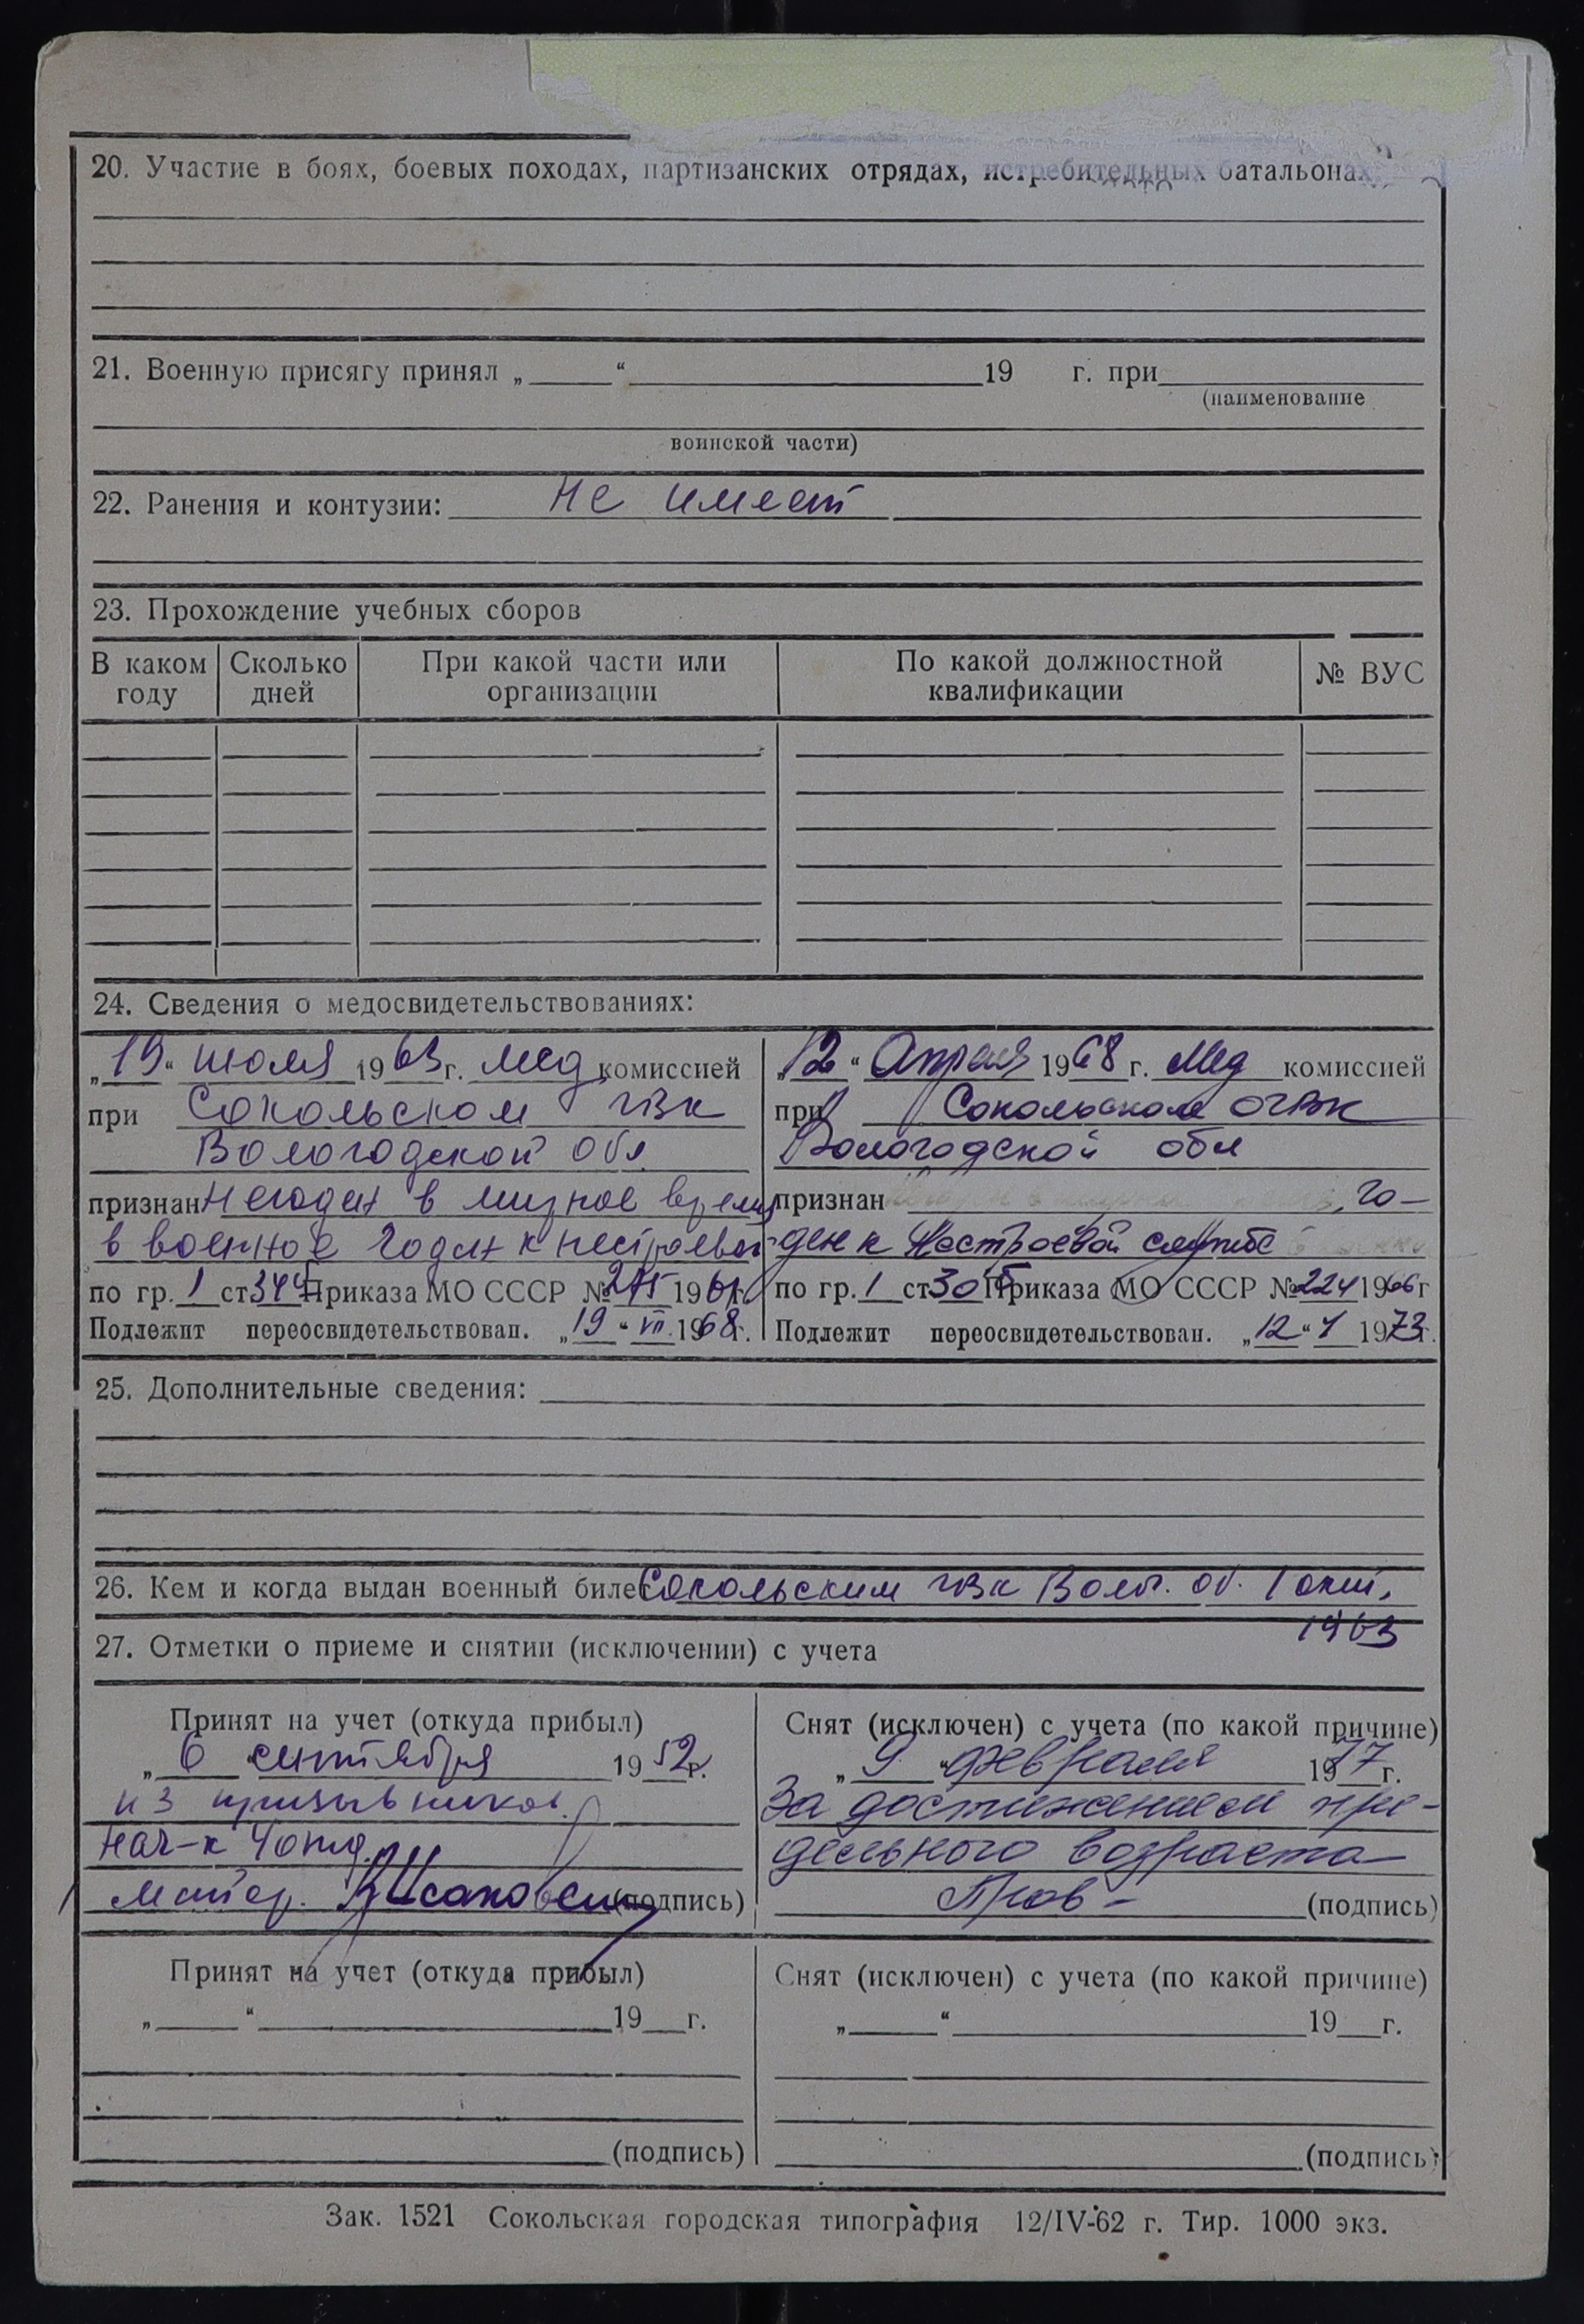 20. Участие в боях, боевых походах, партизанских отрядах, истребительных батальонах
21. Военную присягу принял „ “ 19 г. при
(наименование
воинской части)
22. Ранения и контузии: не имеет
23. Прохождение учебных сборов
В каком году
Сколько дней
При какой части или организации
По какой должностной квалификации
№ ВУС
24. Сведения о медосвидетельствованиях:
„19“ июля 1963 г. мед комиссией
при Сокольском ГВК
Вологодской обл.
признан Негоден в мирное время
в военное годен к нестроевой
по гр. 1 ст Приказа МО СССР № 196 г.
Подлежит переосвидетельствован. „19“ VII. 1968 г.
„12“ Апреля 1968 г. Мед комиссией
при Сокольском ОГВК
Вологодской обл
признан , го–
ден к Нестроевой службе
по гр. 1 ст Приказа МО СССР № 224 1966 г
Подлежит переосвидетельствован. „12“ 1973 г.
25. Дополнительные сведения:
26. Кем и когда выдан военный билет Сокольским ГВК Волог. об. 1 окт.
1963
27. Отметки о приеме и снятии (исключении) с учета
Принят на учет (откуда прибыл)
„6 сентября 1952 г.
из призывников.
Нач-к 4 отд.
майор. (подпись)
Снят (исключен) с учета (по какой причине)
„9 февраля 1977 г.
За достижением пре–
дельного возраста
(подпись)
Принят на учет (откуда прибыл)
„ “ 19 г.
(подпись)
Снят (исключен) с учета (по какой причине)
„ “ 19 г.
(подпись)
Зак. 1521 Сокольская городская типография 12/IV-62 г. Тир. 1000 экз.